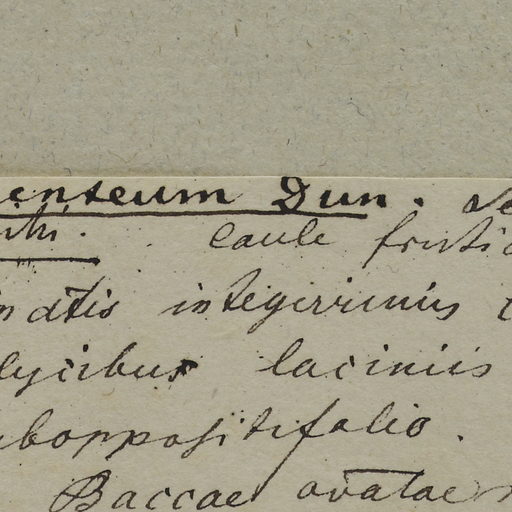 enteum Dun.
caule frutic
natis integerrimis
lycibus laciniis
uboppositifolio.
Baccae ovatae